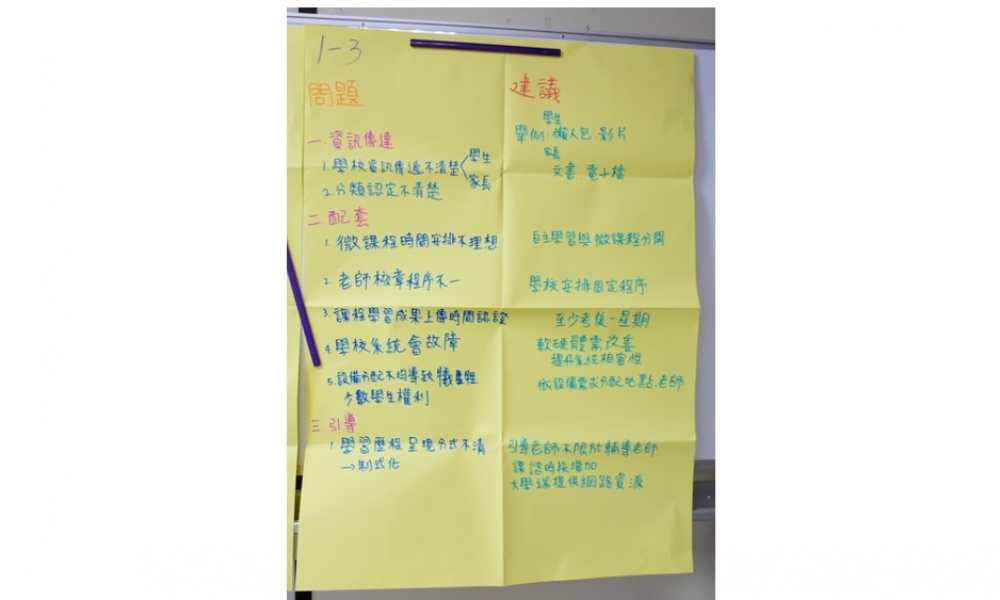 1-3
問題
一.資訊傳達
1.學校資訊傳遞不清楚
學生
家長
2.分類認定不清楚
二.配套
1.微課程時間安排不理想
2.老師核章程序不一
3.課程學習成果上傳時間認證
4.學校系統會故障
5.設備分配不均導致犧牲
少數學生權利
三.引導
1.學習歷程呈現分式不清
→制式化
建議
學生
舉例:懶人包.影片
家長
文書.電子檔
自主學習與微課程分開
學校安排固定程序
至少考後一星期
軟硬體需改善
提升系統相容性
依設備需求分配地點.老師
引導老師不限於輔導老師
課諮時段增加
大學端提供網路資源